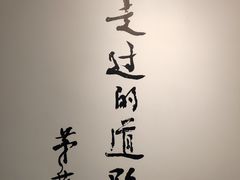 走过的道路
茅盾